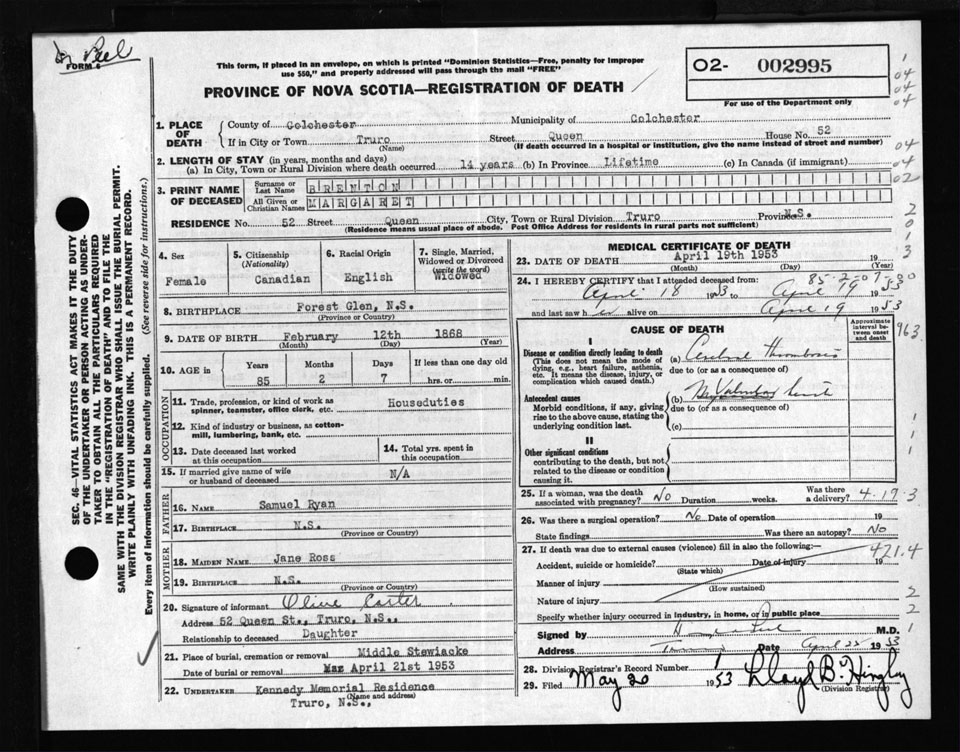 Peel
FORM 6
This form, if placed in an envelope, on which is printed "Dominion Statistics—Free, penalty for improper
use $50," and properly addressed will pass through the mail "FREE"
PROVINCE OF NOVA SCOTIA—REGISTRATION OF DEATH
O2- 002995
For use of the Department only
1. PLACE OF DEATH
County of Colchester Municipality of Colchester
If in City or Town Truro Street Queen House No. 52
(Name) (If death occurred in a hospital or institution, give the name instead of street and number)
2. LENGTH OF STAY (in years, months and days)
(a) In City, Town or Rural Division where death occurred 14 years (b) In Province Lifetime (c) In Canada (if immigrant)
3. PRINT NAME OF DECEASED
Surname or Last Name BRENTON
All Given or Christian Names MARGARET
RESIDENCE No. 52 Street Queen City, Town or Rural Division Truro Province N.S.
(Residence means usual place of abode. Post Office Address for residents in rural parts not sufficient)
4. Sex Female
5. Citizenship (Nationality) Canadian
6. Racial Origin English
7. Single, Married, Widowed or Divorced (write the word) Widowed
8. BIRTHPLACE Forest Glen, N.S.
(Province or Country)
9. DATE OF BIRTH February 12th 1868
(Month) (Day) (Year)
10. AGE in Years 85 Months 2 Days 7 If less than one day old hrs. or min.
OCCUPATION
11. Trade, profession, or kind of work as spinner, teamster, office clerk, etc. Houseduties
12. Kind of industry or business, as cotton-mill, lumbering, bank, etc.
13. Date deceased last worked at this occupation
14. Total yrs. spent in this occupation
15. If married give name of wife or husband of deceased N/A
FATHER
16. NAME Samuel Ryan
17. BIRTHPLACE N.S.
(Province or Country)
MOTHER
18. MAIDEN NAME Jane Ross
19. BIRTHPLACE N.S.
(Province or Country)
20. Signature of informant Olive Carter
Address 52 Queen St., Truro, N.S.,
Relationship to deceased Daughter
21. Place of burial, cremation or removal Middle Stewiacke
Date of burial or removal April 21st 1953
22. UNDERTAKER Kennedy Memorial Residence
(Name and address)
Truro, N.S.,
MEDICAL CERTIFICATE OF DEATH
23. DATE OF DEATH April 19th 1953 19
(Month) (Day) (Year)
85-2-07-00
24. I HEREBY CERTIFY that I attended deceased from:
April 18 1953 to April 19 1953
and last saw her alive on April 19 1953
CAUSE OF DEATH
Approximate interval between onset and death
963
I
Disease or condition directly leading to death
(This does not mean the mode of dying, e.g., heart failure, asthenia, etc. It means the disease, injury, or complication which caused death.)
(a) Cerebral Thrombosis
due to (or as a consequence of)
Antecedent causes
Morbid conditions, if any, giving rise to the above cause, stating the underlying condition last.
(b) Valvular heart
due to (or as a consequence of)
(c)
II
Other significant conditions
contributing to the death, but not related to the disease or condition causing it.
25. If a woman, was the death associated with pregnancy? No Duration weeks. Was there a delivery? 4-17-3
26. Was there a surgical operation? No Date of operation 19
State findings Was there an autopsy? No
27. If death was due to external causes (violence) fill in also the following:— 421.4
Accident, suicide or homicide? Date of injury 19
(State which)
Manner of injury
(How sustained)
Nature of injury
Specify whether injury occurred in industry, in home, or in public place
Signed by Peel M.D.
Address Truro Date April 22 1953
28. Division Registrar's Record Number 1
29. Filed May 20 1953 Lloyd B. Hingley
(Division Registrar)
SEC. 46—VITAL STATISTICS ACT MAKES IT THE DUTY
OF THE UNDERTAKER OR PERSON ACTING AS UNDER-
TAKER TO OBTAIN ALL THE PARTICULARS REQUIRED
IN THE "REGISTRATION OF DEATH" AND TO FILE THE
SAME WITH THE DIVISION REGISTRAR WHO SHALL ISSUE THE BURIAL PERMIT.
WRITE PLAINLY WITH UNFADING INK. THIS IS A PERMANENT RECORD.
Every item of information should be carefully supplied. (See reverse side for instructions.)
1
04
04
04
04
04
02
2
0
1
3
1
1
2
2
1